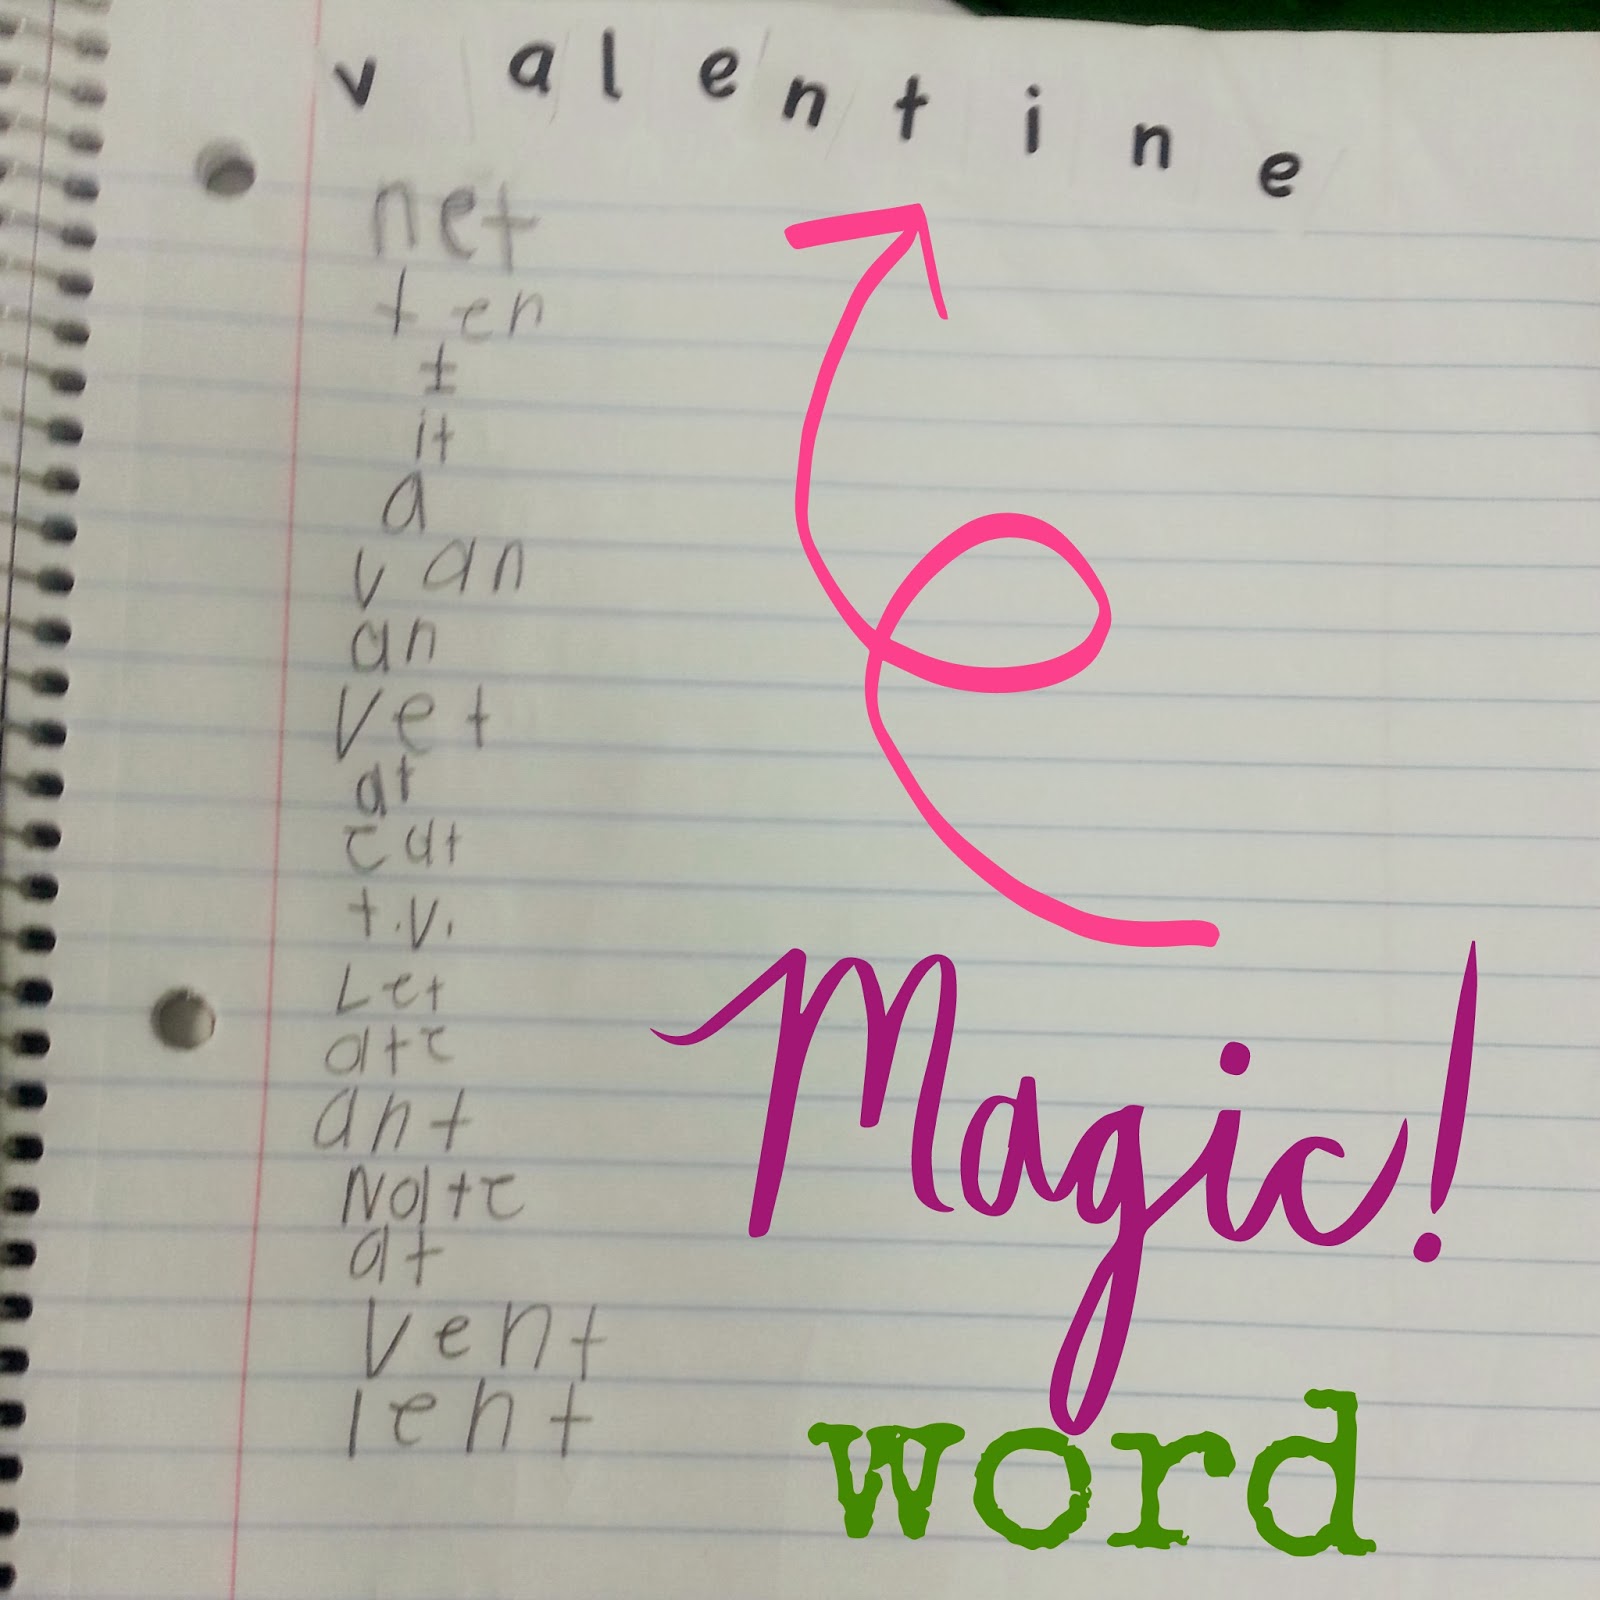 v a l e n t i n e
net
ten
I
it
a
van
an
vet
at
eat
t.v.
Let
ate
ant
Nate
at
vent
lent
Magic!
word